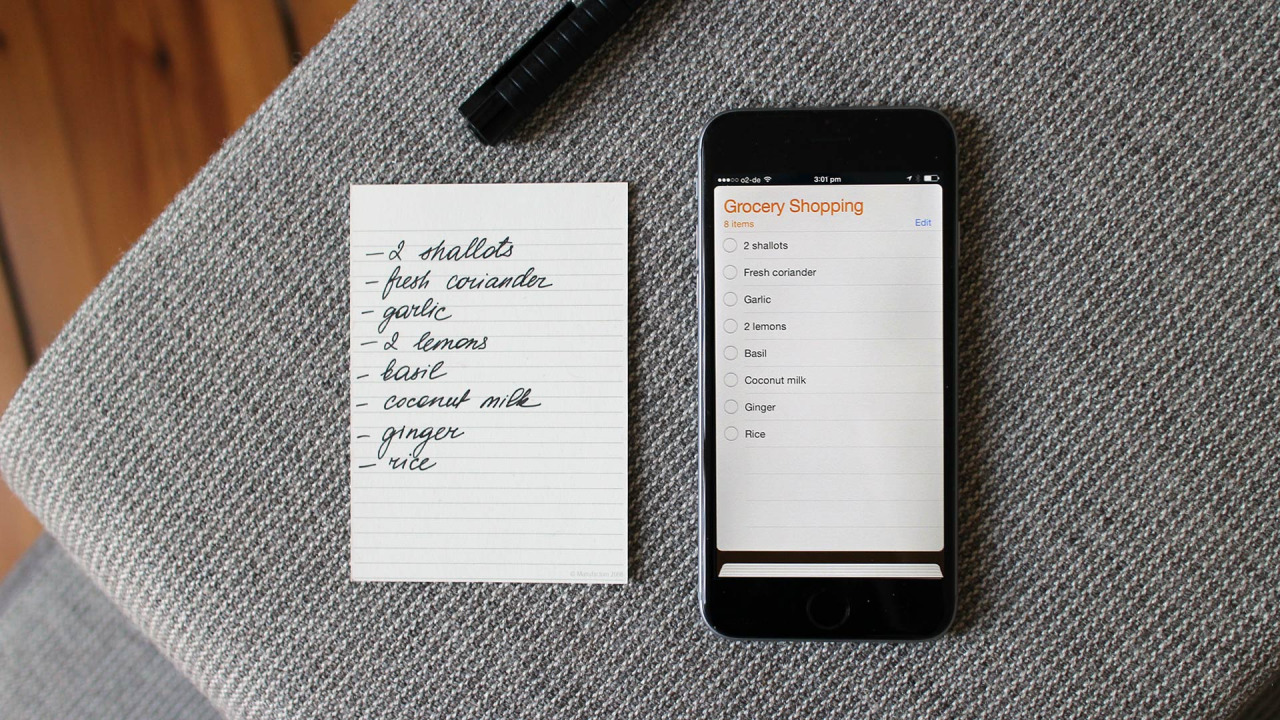 — 2 shallots
- fresh coriander
- garlic
- 2 lemons
- basil
- coconut milk
- ginger
- rice
o2-de 3:01 pm
Grocery Shopping
8 items Edit
2 shallots
Fresh coriander
Garlic
2 lemons
Basil
Coconut milk
Ginger
Rice